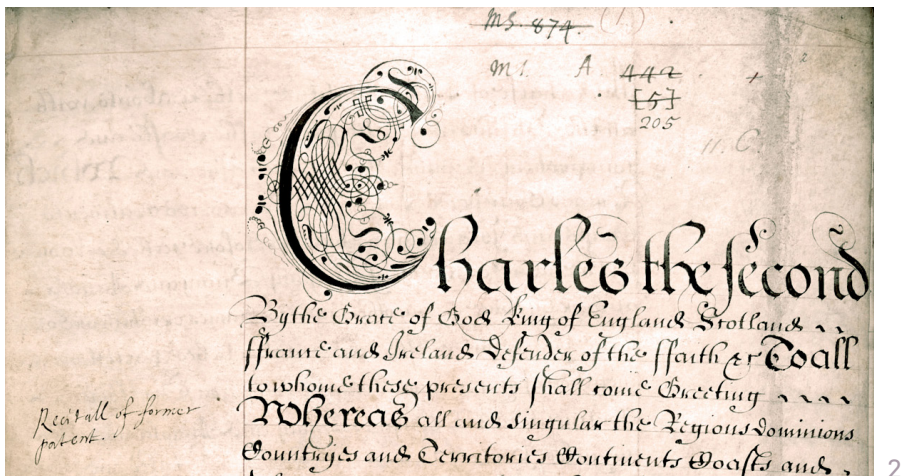 MS. 874. (1.)
MS. A. 442
[5]
205
Charles the second
By the Grace of God King of England Scotland
ffrance and Ireland Defender of the ffaith &c To all
to whome these presents shall come Greeting
Whereas all and singular the Regions dominions
Countryes and Territories Continents Coasts and
Recitall of former
patent.
2